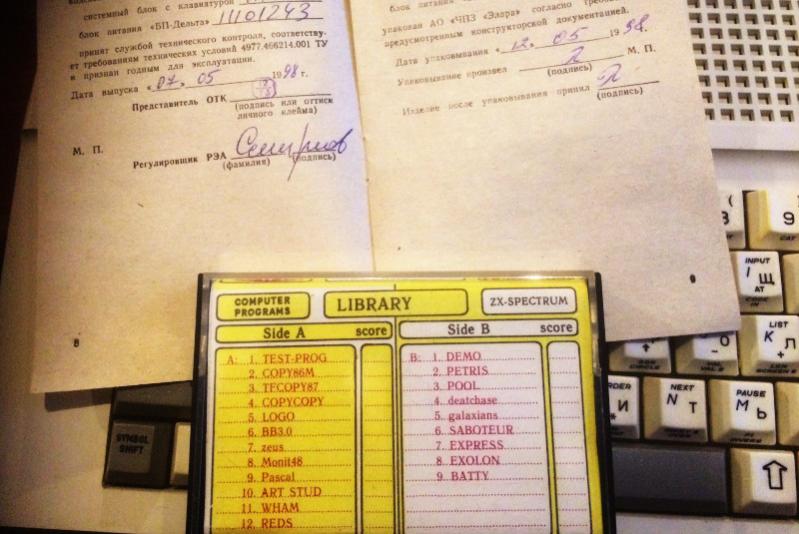 системный блок с клавиатурой
блок питания «БП-Дельта» 11101243
принят службой технического контроля, соответству-
ет требованиям технических условий 4977.466214.001 ТУ
и признан годным для эксплуатации.
Дата выпуска «07» 05 1998 г.
Представитель ОТК
(подпись или оттиск
личного клейма)
М. П.
Регулировщик РЭА
(фамилия) (подпись)
8
блок питания
упакован АО «ЧПЗ «Элара» согласно
предусмотренным конструкторской документацией.
Дата упаковывания «12» 05 1998
М. П.
Упаковывание произвел
(подпись)
Изделие после упаковывания принял
(подпись)
9
COMPUTER
PROGRAMS
LIBRARY
ZX-SPECTRUM
Side A score Side B score
A: 1. TEST-PROG
2. COPY86M
3. TFCOPY87
4. COPYCOPY
5. LOGO
6. BB3.0
7. zeus
8. Monit48
9. Pascal
10. ART STUD
11. WHAM
12. REDS
B: 1. DEMO
2. PETRIS
3. POOL
4. deatchase
5. galaxians
6. SABOTEUR
7. EXPRESS
8. EXOLON
9. BATTY
SYMBOL
SHIFT
9
CAT
INPUT
I Щ
AT
CODE IN
LIST
К Л
+
LEN SCREEN $
O
И
NEXT
N Т
PAUSE
M Ь